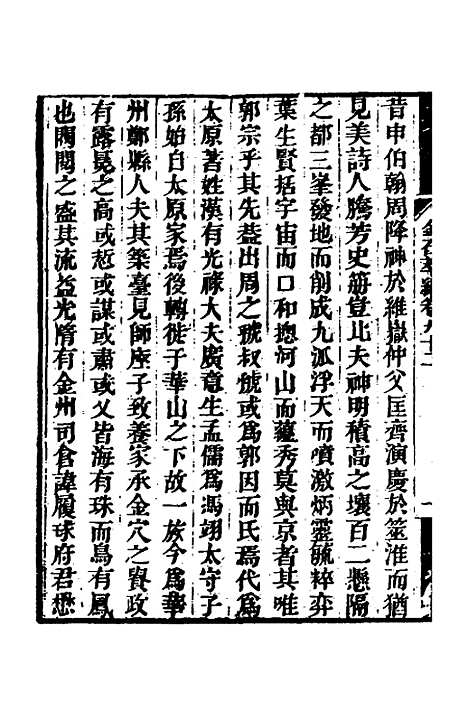 昔申伯翰周降神於維嶽仲父匡齊演慶於筮淮而猶
見美詩人騰芳史冊豈比夫神明積高之壤百二懸隔
之都三峯發地而削成九派浮天而噴激炳靈毓粹弈
葉生賢括宇宙而口和摠河山而蘊秀莫與京者其唯
郭宗乎其先葢出周之虢叔虢或爲郭因而氏焉代爲
太原著姓漢有光祿大夫廣意生孟儒爲馮翊太守子
孫始自太原家焉後轉徙于華山之下故一族今爲華
州鄭縣人夫其築臺見師座子致養家承金穴之賚政
有露冕之高或悊或謀或肅或乂皆海有珠而鳥有鳳
也閥閱之盛其流益光隋有金州司倉諱履球府君懋
金石萃編卷九十二
一